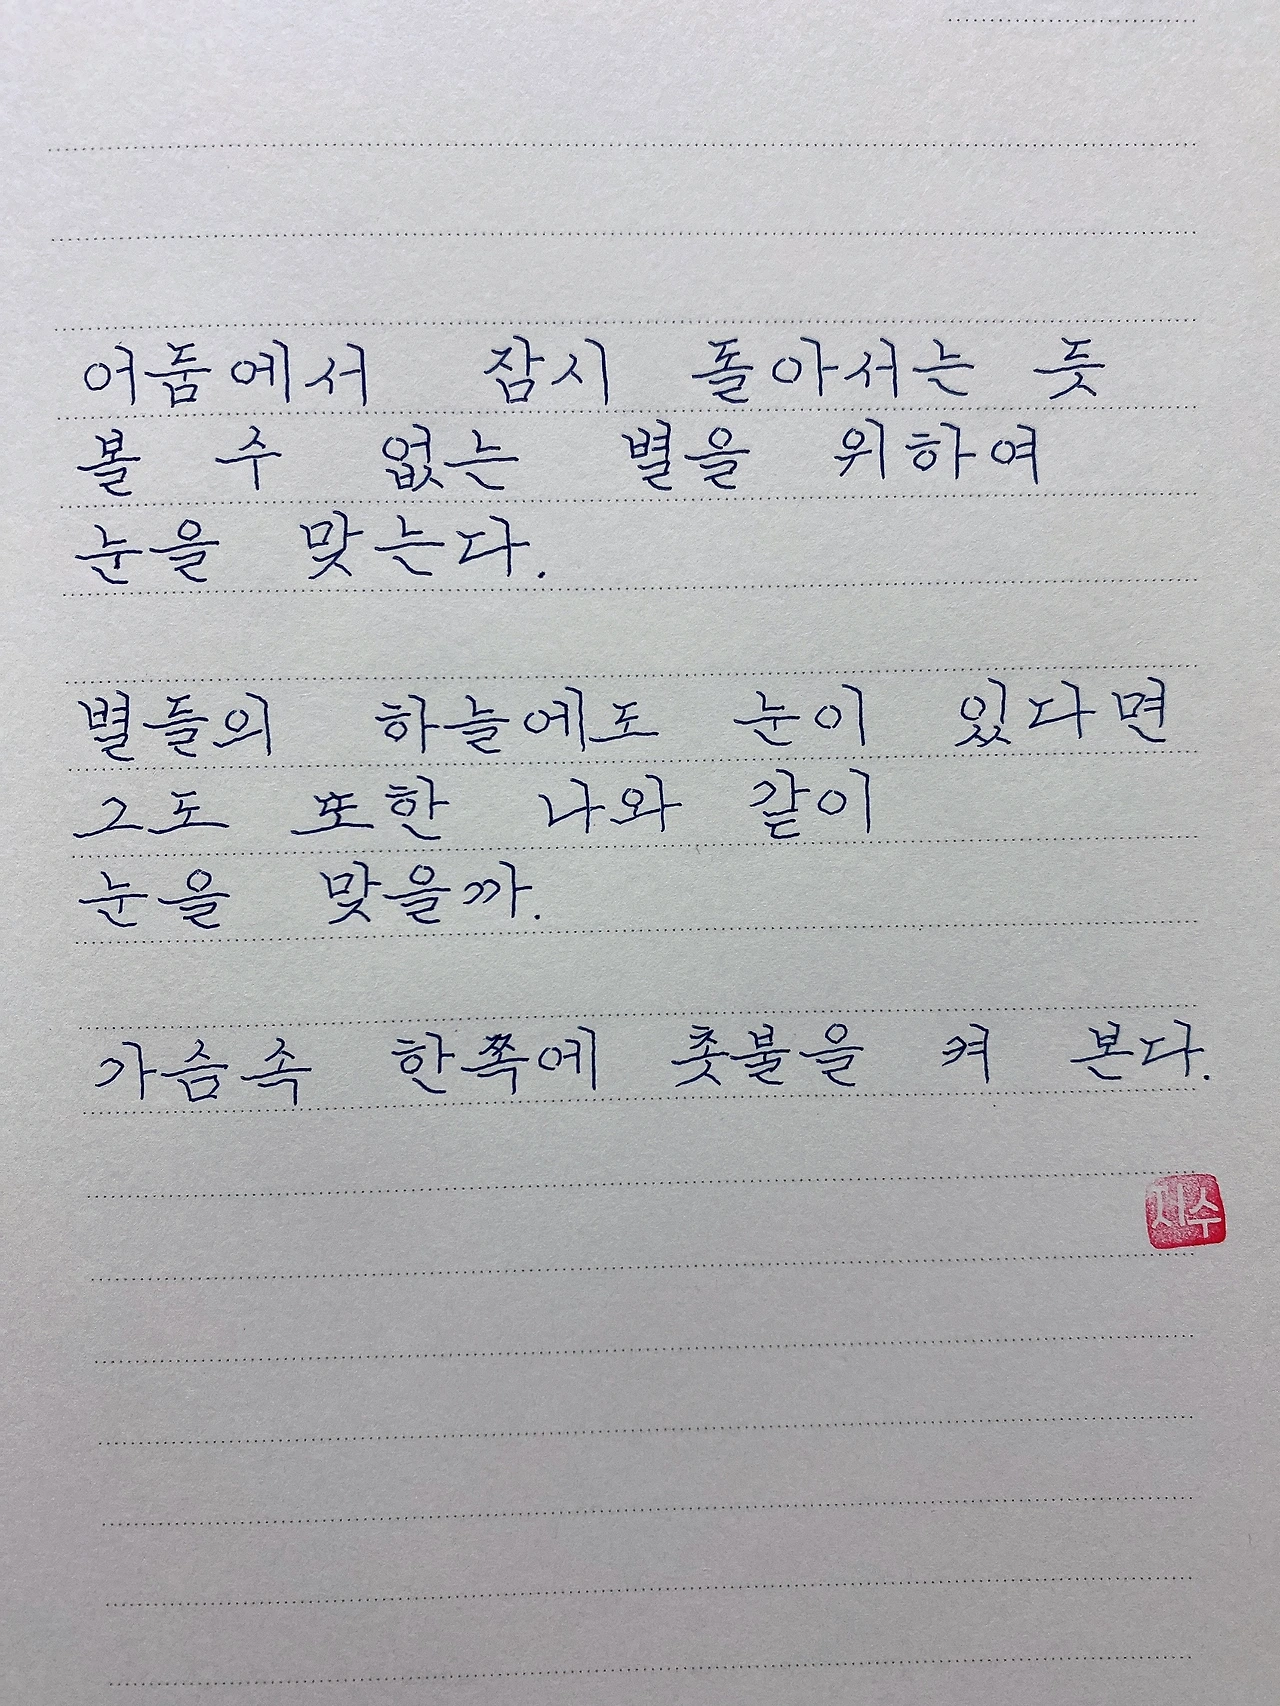 어둠에서 잠시 돌아서는 듯
볼 수 없는 별을 위하여
눈을 맞는다.
별들의 하늘에도 눈이 있다면
그도 또한 나와 같이
눈을 맞을까.
가슴속 한쪽에 촛불을 켜 본다.